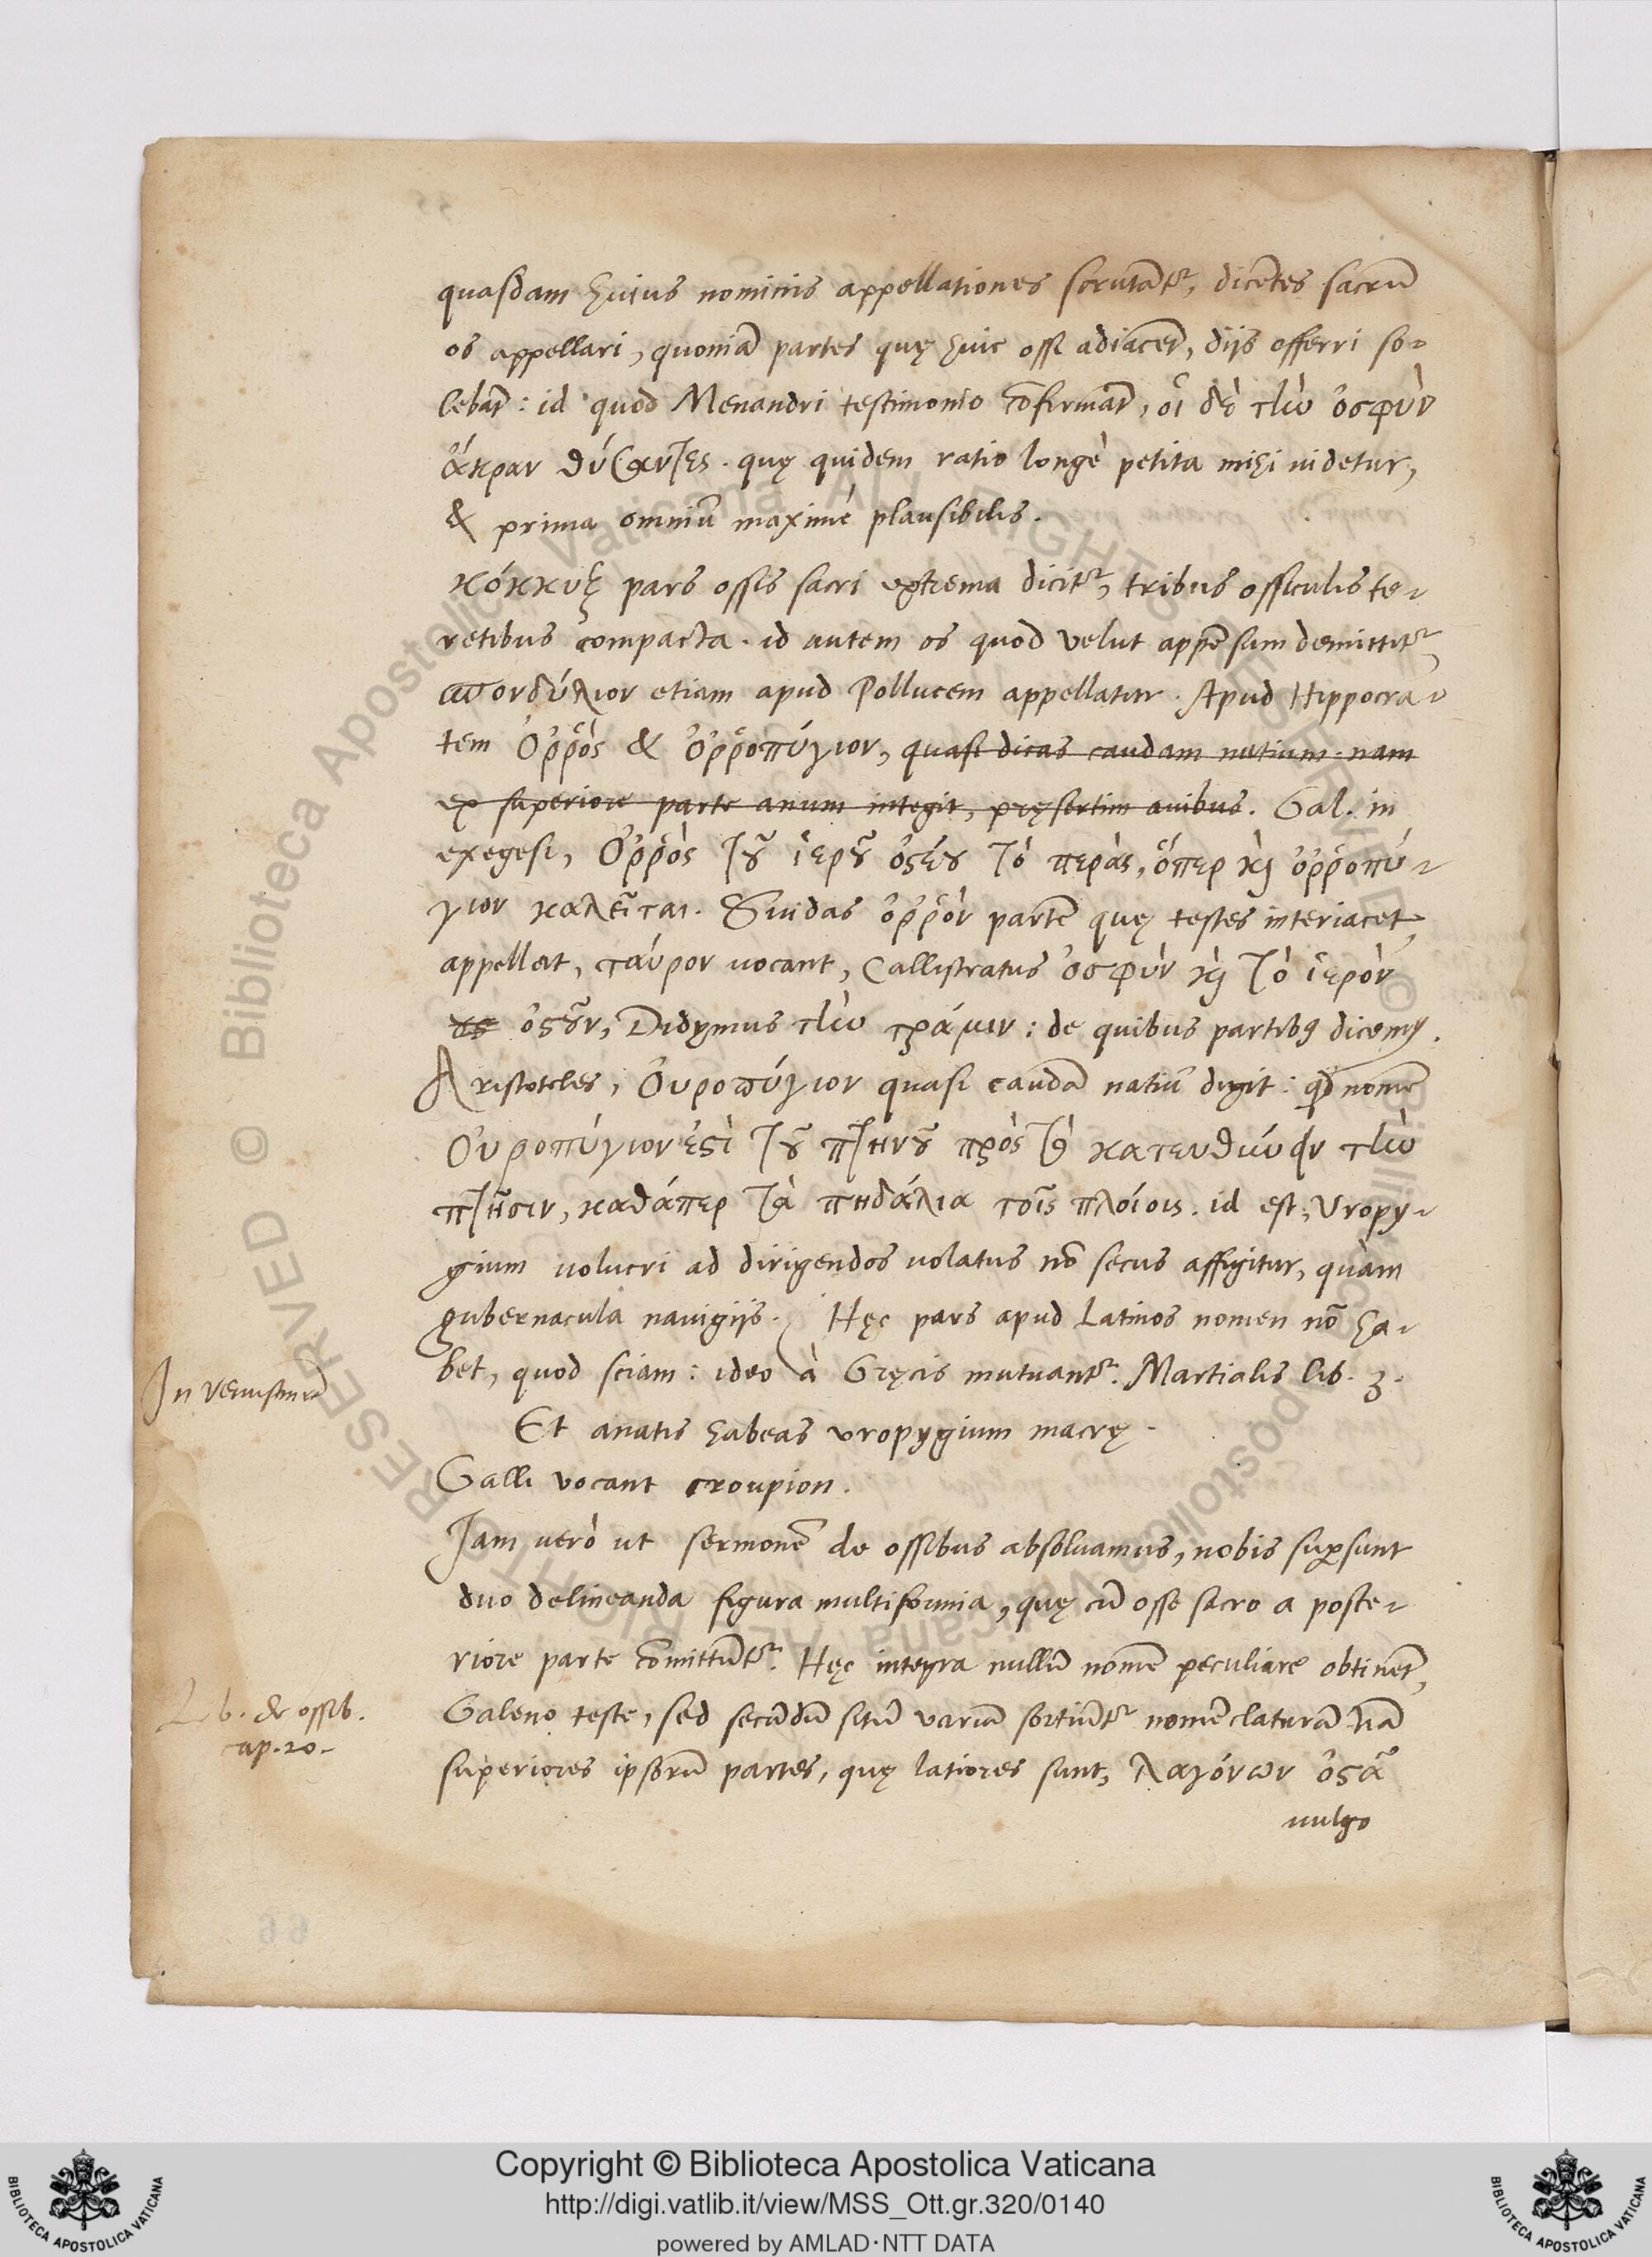 quasdam huius nominis appellationes scrutãtʳ, dicẽtes sacrũ
os appellari, quoniã partes quę huic ossi adiacẽt, dijs offerri so-
lebãt : id quod Menandri testimonio cõfirmãt, οἱ δὲ τὴν ὀσφὺν
ἄκραν θύσαντες. quę quidem ratio longè petita mihi uidetur,
& prima omniũ maximè plausibilis.
κόκκυξ pars ossis sacri extrema dicitʳ, tribus ossiculis te-
retibus compacta. id autem os quod velut appẽsum demittitʳ,
σπονδύλιον etiam apud Pollucem appellatur. Apud Hippocra-
tem Ὀῤῥὸς & ὀῤῥοπύγιον, quasi dicas caudam natium. nam
ex superiore parte anum integit, pręsertim auibus. Gal. in
exegesi, Ὀῤῥὸς τοῦ ἱεροῦ ὀστέου τὸ περὰς, ὅπερ καὶ ὀῤῥοπύ-
γιον καλεῖται. Suidas ὀῤῥὸν partẽ quę testes interiacet,
appellat, ταύρον uocant, Callistratus ὀσφὺν καὶ τὸ ἱερὸν
ὀστοῦν, Didymus τὴν τράμιν : de quibus partibꝰ dicemꝰ.
Aristoteles, Οὐροπύγιον quasi caudã natiũ dixit : qd nomẽ
Οὐροπύγιον ἐστὶ τοῦ πτηνοῦ πρὸς τὸ κατευθύνειν τὴν
πτῆσιν, καθάπερ τὰ πηδάλια τοῖς πλοίοις. id est, Vropy-
gium volucri ad dirigendos uolatus nõ secus affigitur, quàm
gubernacula nauigijs. Hęc pars apud Latinos nomen nõ ha-
bet, quod sciam : ideo à Gręcis mutuantʳ. Martialis lib. 3.
Et anatis habeas vropygium macrę.
Galli vocant croupion.
Iam uerò ut sermonẽ de ossibus absoluamus, nobis supersunt
duo delineanda figura multiformia, quę cũ osse sacro a poste-
riore parte cõmittũtʳ. Hęc integra nullũ nomẽ peculiare obtinẽt,
Galeno teste, sed secũdũ sitũ variã sortiũtʳ nomẽclaturã. nã
superiores ipsorũ partes, quę latiores sunt, λαγόνων ὀστᾶ
uulgo
Lib. de ossib.
cap. 20.
Copyright © Biblioteca Apostolica Vaticana
http://digi.vatlib.it/view/MSS_Ott.gr.320/0140
powered by AMLAD·NTT DATA
BIBLIOTECA APOSTOLICA VATICANA
BIBLIOTECA APOSTOLICA VATICANA